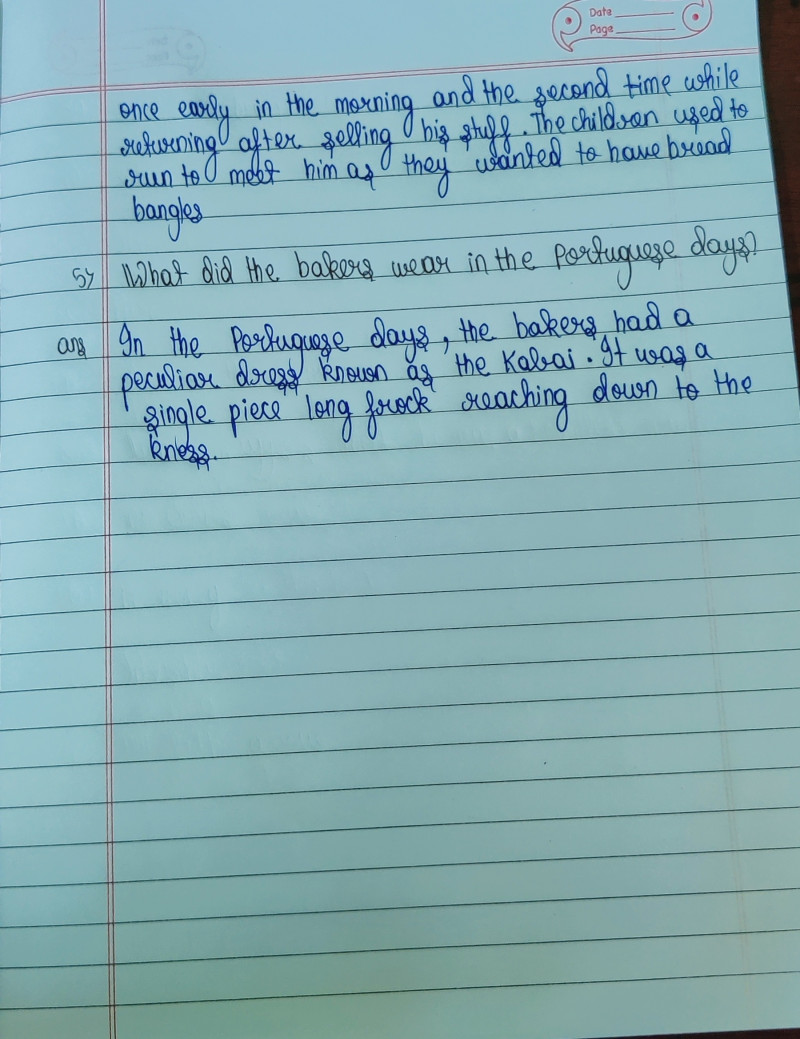 Date
Page
once early in the morning and the second time while
returning after selling his stuff. The children used to
run to meet him as they wanted to have bread
bangles
5) What did the bakers wear in the Portuguese days?
ans In the Portuguese days, the bakers had a
peculiar dress known as the Kabai. It was a
single piece long frock reaching down to the
kness.